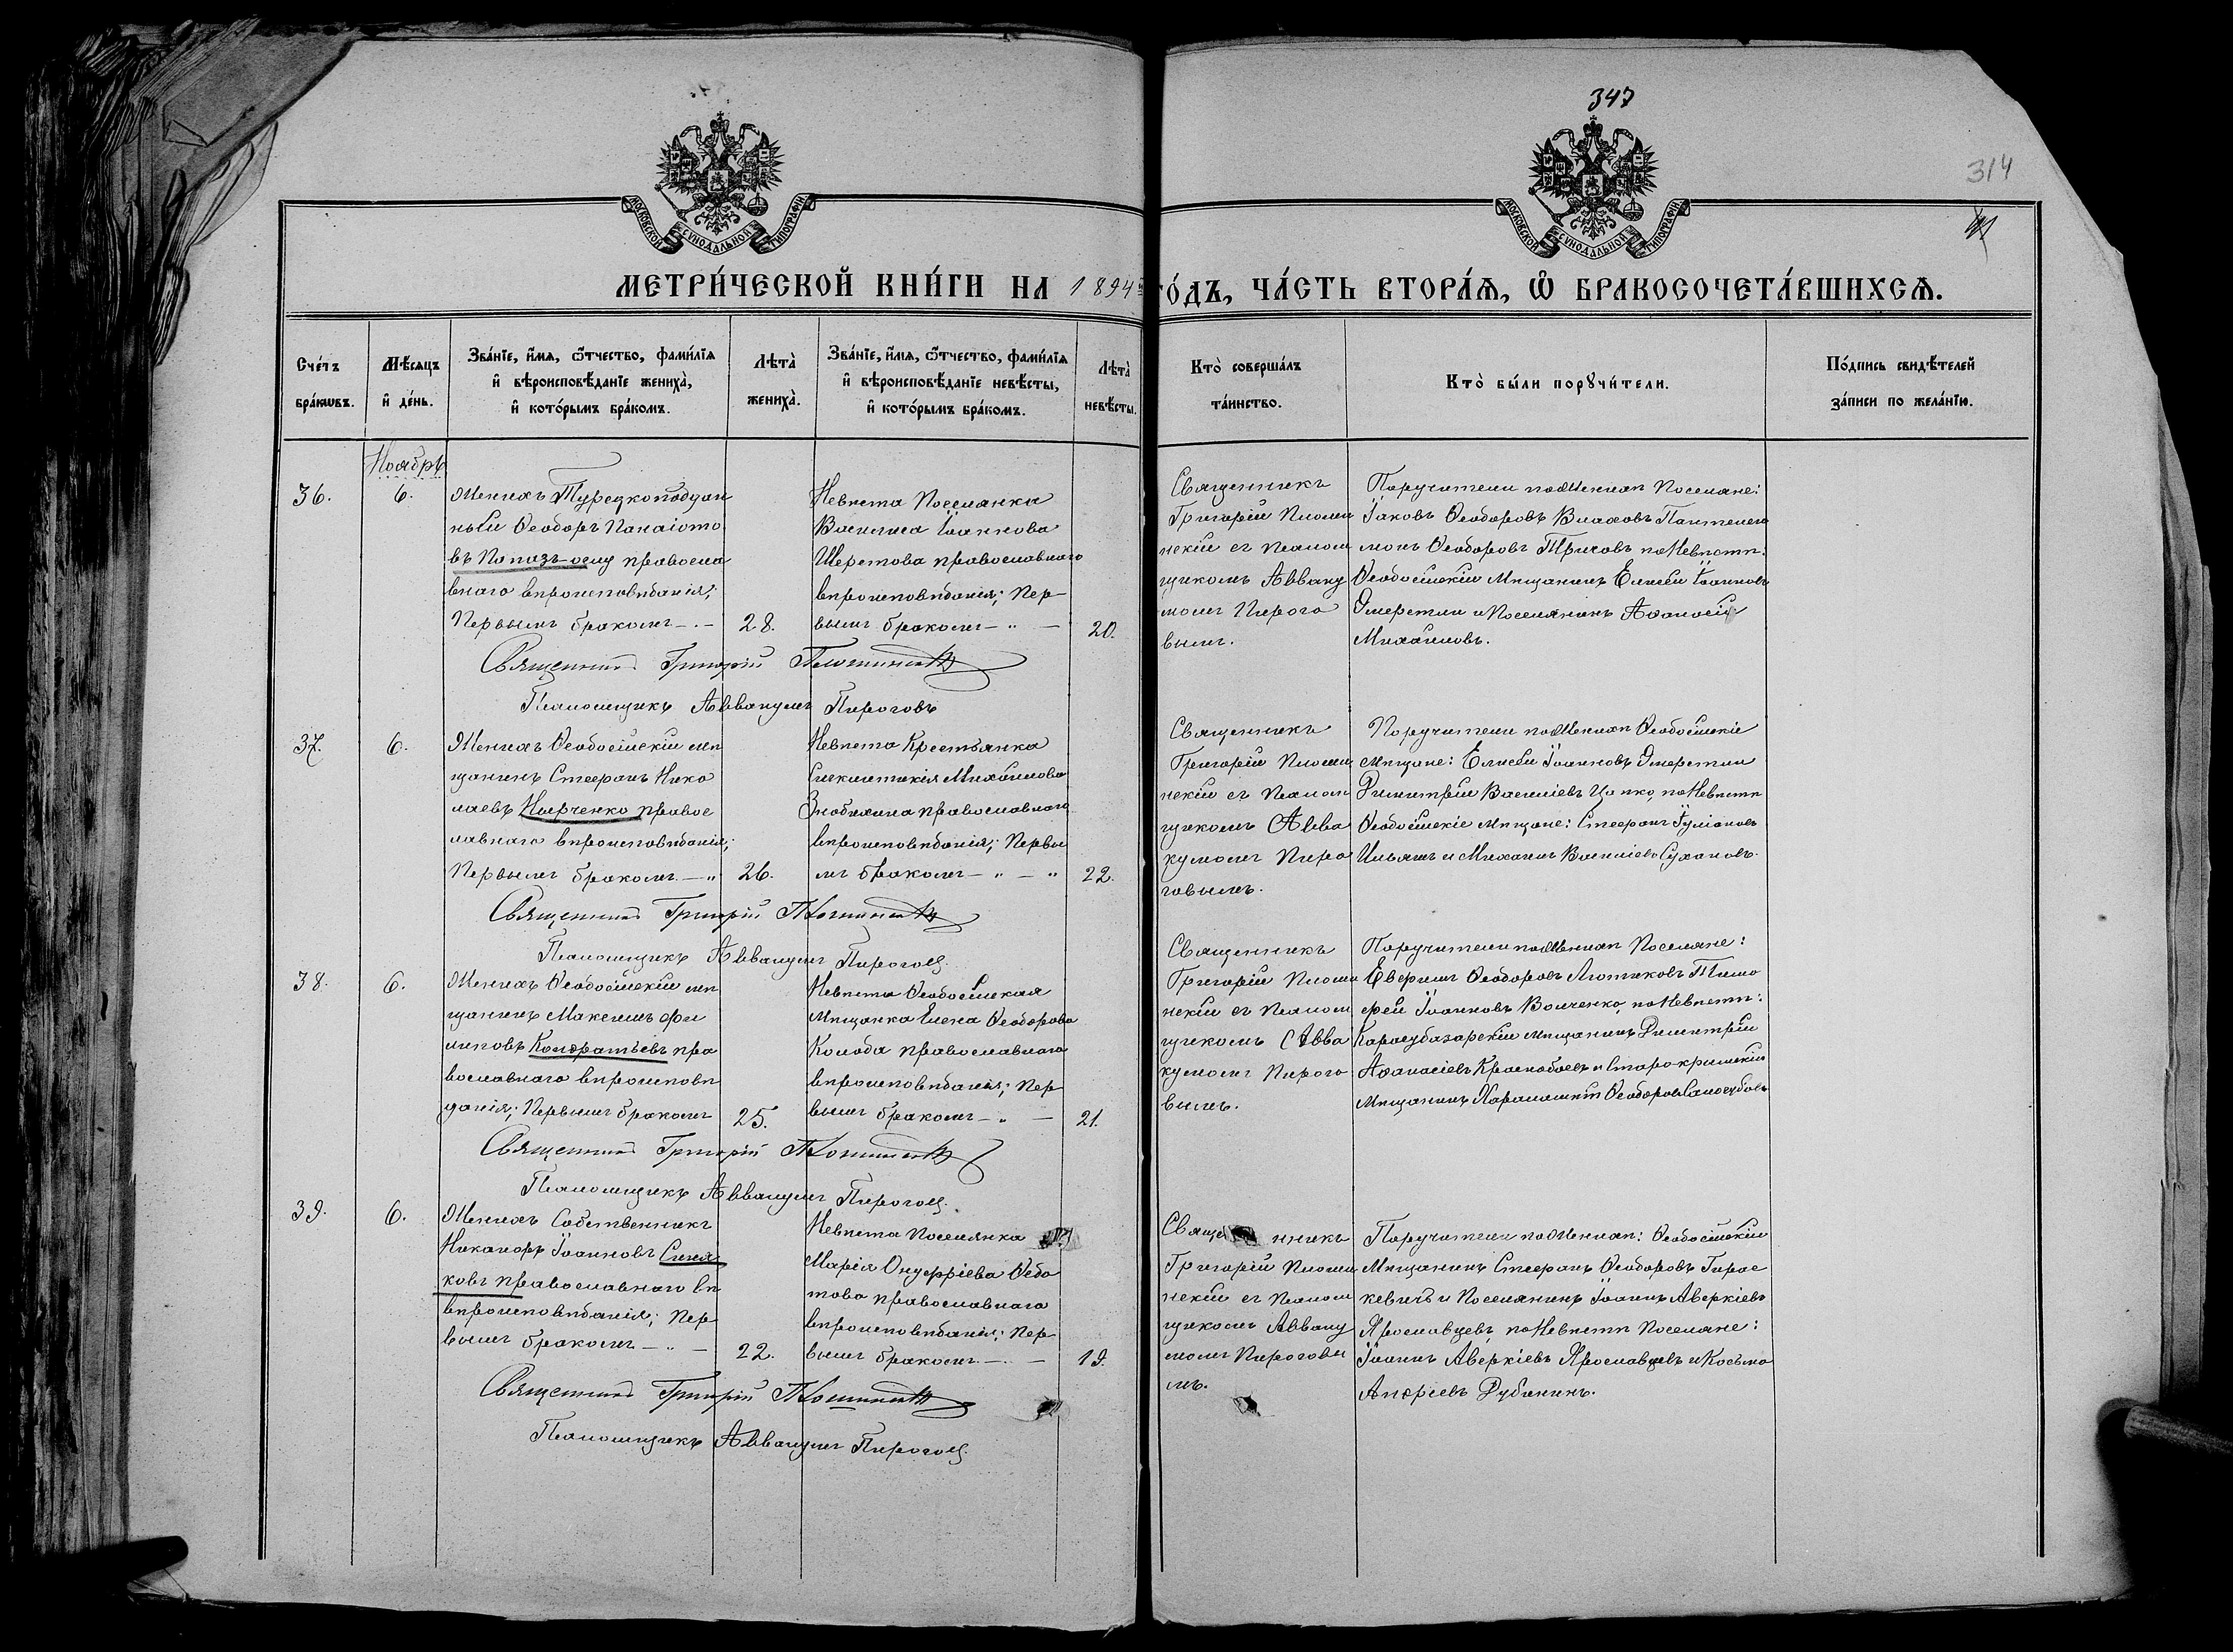 347
314
МОСКОВСКОЙ СѴНОДАЛЬНОЙ ТИПОГРАФІИ
МОСКОВСКОЙ СѴНОДАЛЬНОЙ ТИПОГРАФІИ
МЕТРИ́ЧЕСКОЙ КНИ́ГИ НА 1894й ГО́ДЪ, ЧА́СТЬ ВТОРА́Ѧ, Ѡ БРАКОСОЧЕТА́ВШИХСѦ.
Сче́тъ
бра́кωвъ.
Мѣ́сяцъ
и҆ де́нь.
Зва́нїе, и҆́мѧ, ѻ҆́тчество, фами́лїѧ
и҆ вѣроисповѣ́данїе жениха̀,
и҆ кото́рымъ бра́комъ.
Лѣта̀
жениха̀.
Зва́нїе, и҆́мѧ, ѻ҆́тчество, фами́лїѧ
и҆ вѣроисповѣ́данїе невѣ́сты,
и҆ кото́рымъ бра́комъ.
Лѣта̀
невѣ́сты.
Кто̀ соверша́лъ
та́инство.
Кто̀ бы́ли порꙋчи́тели.
По́дпись свидѣ́телей
за́писи по жела́нїю.
Ноябрь
36.
6.
Женихъ Турецкоподдан
ный Ѳеодоръ Панаіото
въ Попазъ-оглу правосла
внаго вѣроисповѣданія;
Первымъ бракомъ —
28.
Невѣста Поселянка
Василиса Іоаннова
Шеретова православнаго
вѣроисповѣданія; Пер-
вымъ бракомъ — " —
20.
Священникъ
Григорій Плошин
скій съ Псалом
щикомъ Авваку
момъ Пирого
вымъ.
Поручители по Женихѣ Поселяне:
Іаковъ Ѳеодоровъ Влаховъ Пантелей
монъ Ѳеодоровъ Тричовъ по Невѣстѣ:
Ѳеодосійскій Мѣщанинъ Елисей Іоанновъ
Эмеретли и Поселянинъ Аѳанасій
Михайловъ.
Священникъ Григорій Плошинскій
Псаломщикъ Аввакумъ Пироговъ
37.
6.
Женихъ Ѳеодосійскій мѣ
щанинъ Стефанъ Нико
лаевъ правос
лавнаго вѣроисповѣданія;
Первымъ бракомъ — "
26.
Невѣста Крестьянка
Синклитикія Михайлова
Знобихина православнаго
вѣроисповѣданія; Первы
мъ бракомъ — " — "
22.
Священникъ
Григорій Плошин
скій съ Псалом
щикомъ Авва
кумомъ Пиро
говымъ.
Поручители по Женихѣ Ѳеодосійскіе
Мѣщане: Елисей Іоанновъ Эмеретли
Димитрій Василіевъ Цапко, по Невѣстѣ
Ѳеодосійскіе Мѣщане: Стефанъ Іуліановъ
Ильяшъ и Михаилъ Василіевъ Сухановъ.
Священникъ Григорій Плошинскій
Псаломщикъ Аввакумъ Пироговъ.
38.
6.
Женихъ Ѳеодосійскій мѣ
щанинъ Максимъ Фи
липовъ Кондратьевъ пра
вославнаго вѣроисповѣ
данія; Первымъ бракомъ
25.
Невѣста Ѳеодосійская
Мѣщанка Елена Ѳеодорова
Колода православнаго
вѣроисповѣданія; Пер
вымъ бракомъ — " —
21.
Священникъ
Григорій Плошин
скій съ Псалом
щикомъ Авва
кумомъ Пирого
вымъ.
Поручители по Женихѣ Поселяне:
Евфимъ Ѳеодоровъ Лютиковъ Тимо
фей Іоанновъ Волченко, по Невѣстѣ:
Карасубазарскій мѣщанинъ Димитрій
Аѳанасіевъ Краснобаевъ и Старокрымскій
Мѣщанинъ Харалампій Ѳеодоровъ
Священникъ Григорій Плошинскій
Псаломщикъ Аввакумъ Пироговъ.
39.
6.
Женихъ Собственникъ
Никаноръ Іоанновъ Синя
ковъ православнаго вѣ
вѣроисповѣданія; Пер
вымъ бракомъ — " —
22.
Невѣста Поселянка
Марія Онуфріева Ѳедо
това православнаго
вѣроисповѣданія; Пер
вымъ бракомъ — —
19.
Священникъ
Григорій Плошин
скій съ Псалом
щикомъ Авваку
момъ Пироговы
мъ.
Поручители по Женихѣ: Ѳеодосійскій
Мѣщанинъ Стефанъ Ѳеодоровъ Гирос
кевичъ и Поселянинъ Іоаннъ Аверкіевъ
Ярославцевъ, по Невѣстѣ Поселяне:
Іоаннъ Аверкіевъ Ярославцевъ и Косьма
Андреевъ Дубининъ.
Священникъ Григорій Плошинскій
Псаломщикъ Аввакумъ Пироговъ.